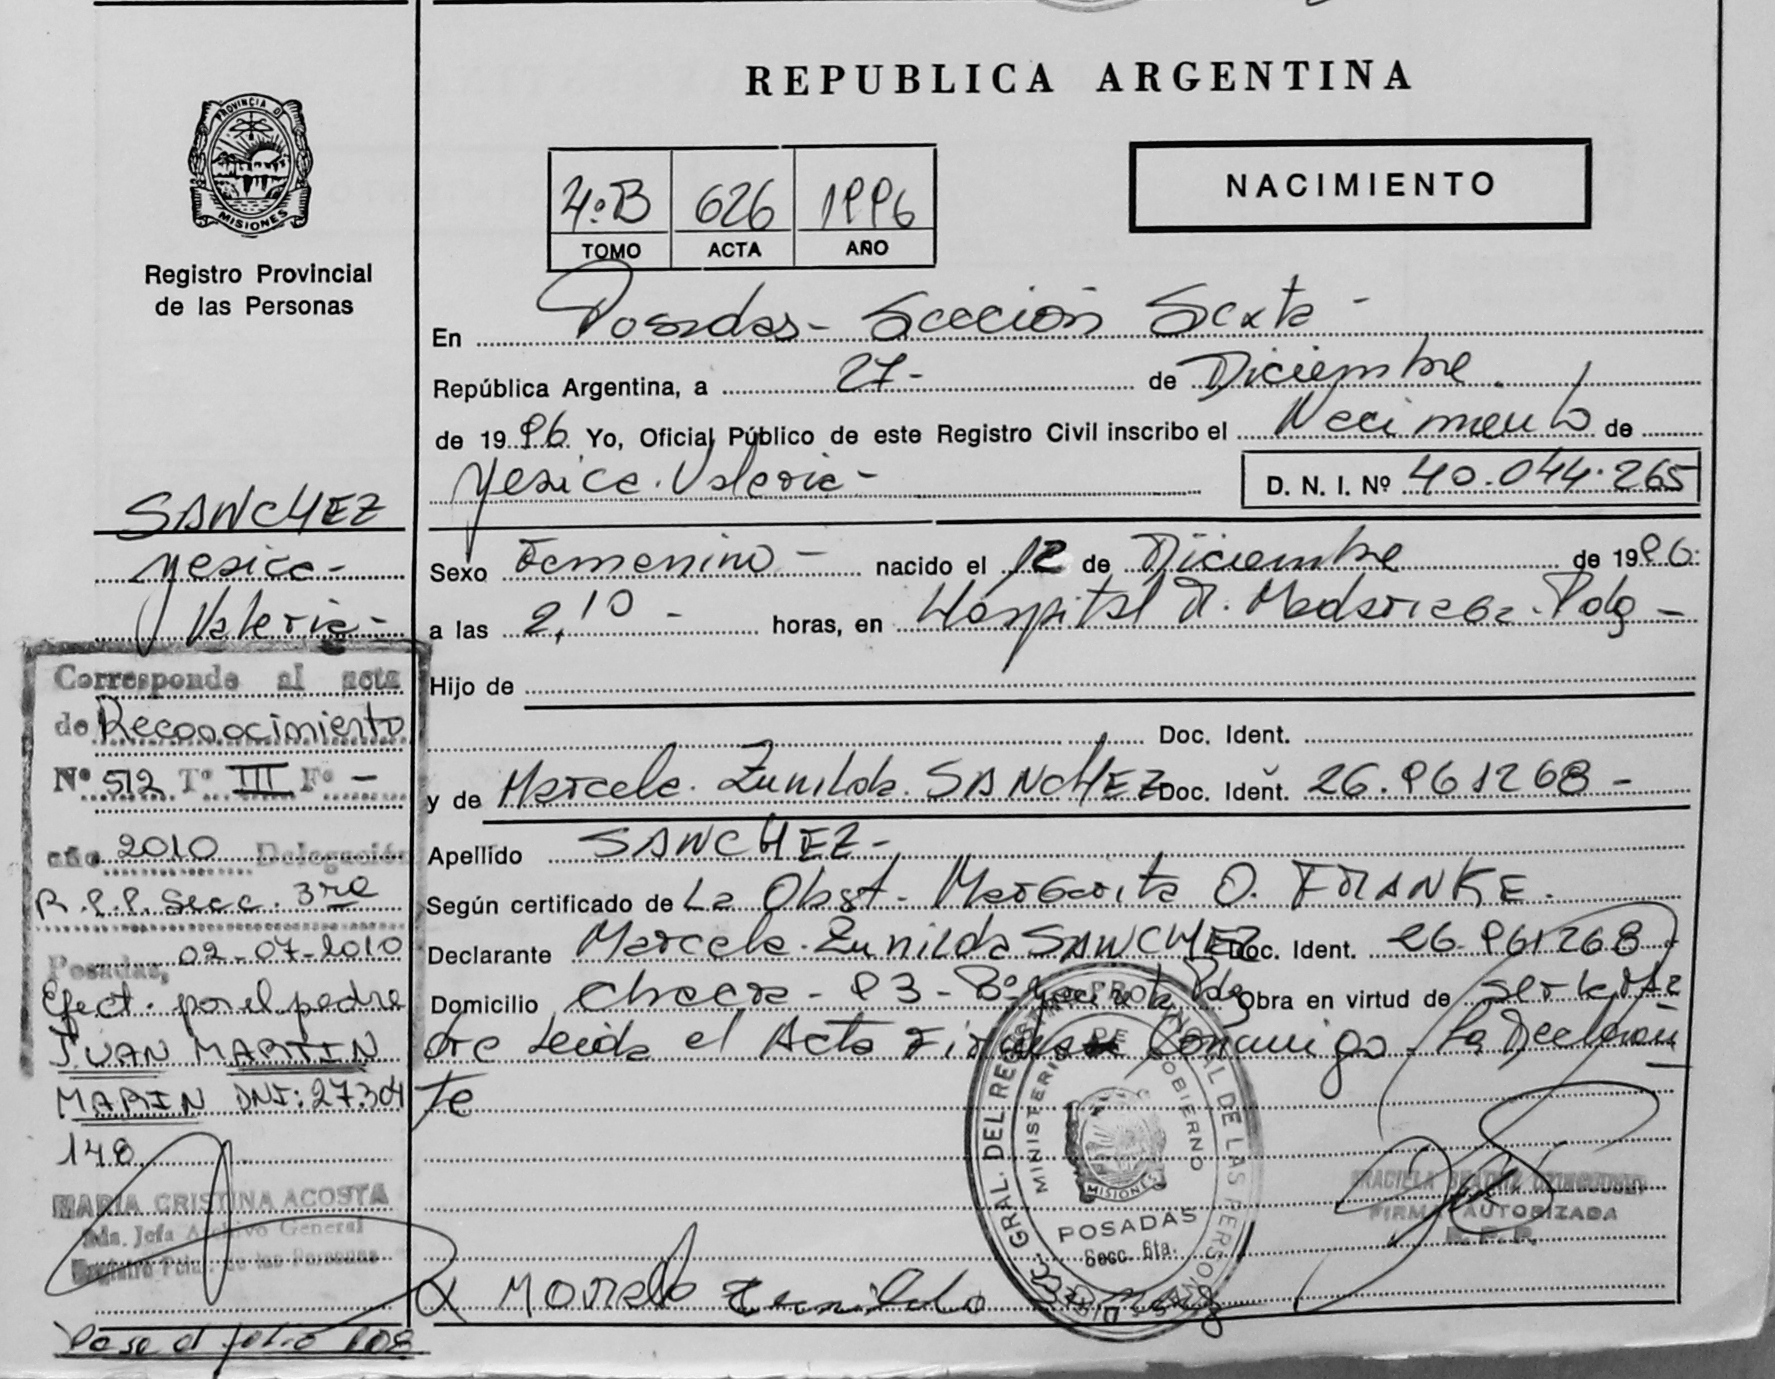 REPUBLICA ARGENTINA
PROVINCIA DE
MISIONES
Registro Provincial
de las Personas
NACIMIENTO
4º B 626 1996
TOMO ACTA AÑO
En Posadas - Sección Sexta -
República Argentina, a 27 - de Diciembre
de 1996 Yo, Oficial Público de este Registro Civil inscribo el Nacimiento de
Yesica Valeria - D. N. I. Nº 40.044.265
Sexo Femenino - nacido el 12 de Diciembre de 1996
a las 2,10 - horas, en Hospital R. Madariaga. Pdas -
Hijo de
Doc. Ident.
y de Marcela Zunilda SANCHEZ Doc. Ident. 26.961268 -
Apellido SANCHEZ -
Según certificado de La Obst. Margarita O. FRANKE.
Declarante Marcela Zunilda SANCHEZ Doc. Ident. 26.961268
Domicilio Chacra - 93 - Bº Pdas Obra en virtud de ser la Ma
dre Leida el Acta Firma Conmigo La Declaran
te
SANCHEZ
Yesica -
Valeria -
Corresponde al acta
de Reconocimiento
Nº 512 Tº III Fº -
año 2010 Delegación
R.P.P. Secc. 3ra
Posadas, 02-07-2010
Efect. por el padre
JUAN MARTIN
MARIN DNI: 27.304
148.
MARIA CRISTINA ACOSTA
Jefa Archivo General
Registro Pcial. de las Personas
Pase al folio 108
DIREC. GRAL. DEL REGISTRO PROVINCIAL DE LAS PERSONAS
MINISTERIO DE GOBIERNO
MISIONES
POSADAS
Secc. 6ta.
GRACIELA BEATRIZ
FIRMA AUTORIZADA
R. P. P.
Zunilda